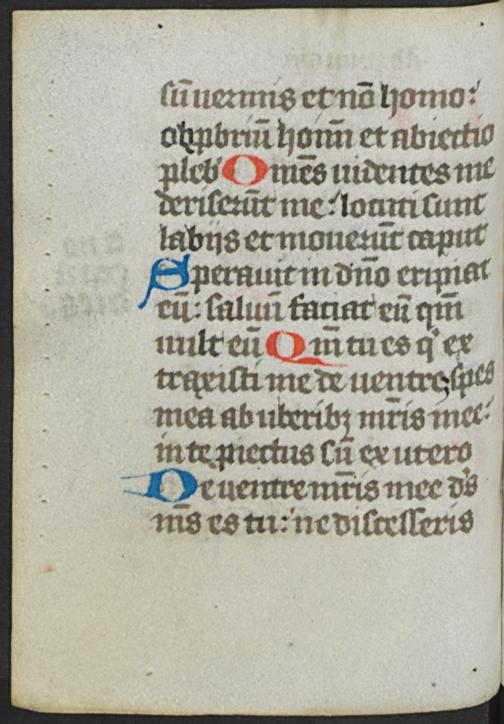 sū uermis et nō homo:
obp̱briū hoīm et abiectio
pleb' Omēs uidentes me
deriserūt me: locuti sunt
labijs et mouerūt caput
Sperauit in dn̄o eripiat
eū: saluū faciat eū qm̄
uult eū Qm̄ tu es q' ex
traxisti me de uentre: spes
mea ab uberibꝫ mr̄is mee:
in te piectus sū ex utero
De uentre mr̄is mee d's
m̄s es tu: ne discesseris